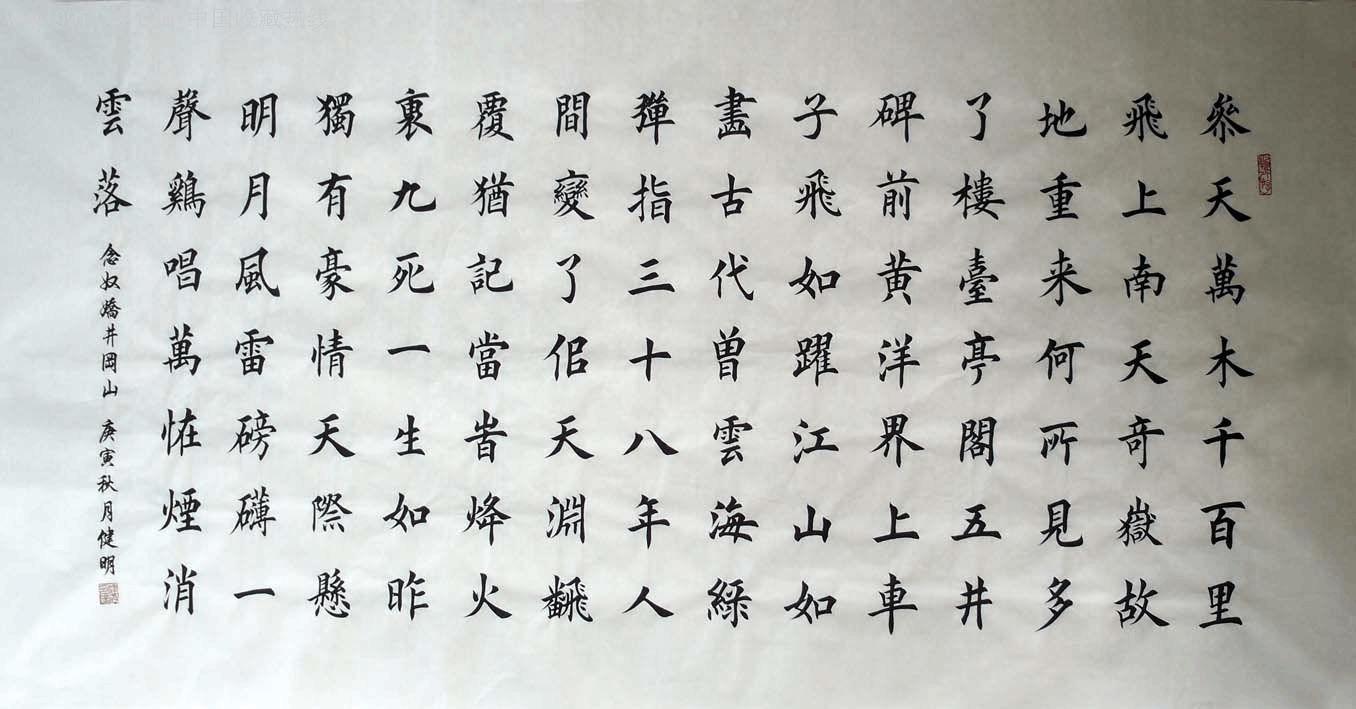 叅天萬木千百里
飛上南天奇嶽故
地重来何所見多
了樓臺亭閣五井
碑前黄洋界上車
子飛如躍江山如
畵古代曾雲海綠
彈指三十八年人
間變了佀天淵飜
覆猶記當旹烽火
裏九死一生如昨
獨有豪情天際懸
明月風雷磅礴一
聲鷄唱萬恠煙消
雲落
念奴嬌井岡山 庚寅秋月健明
中国收藏热线